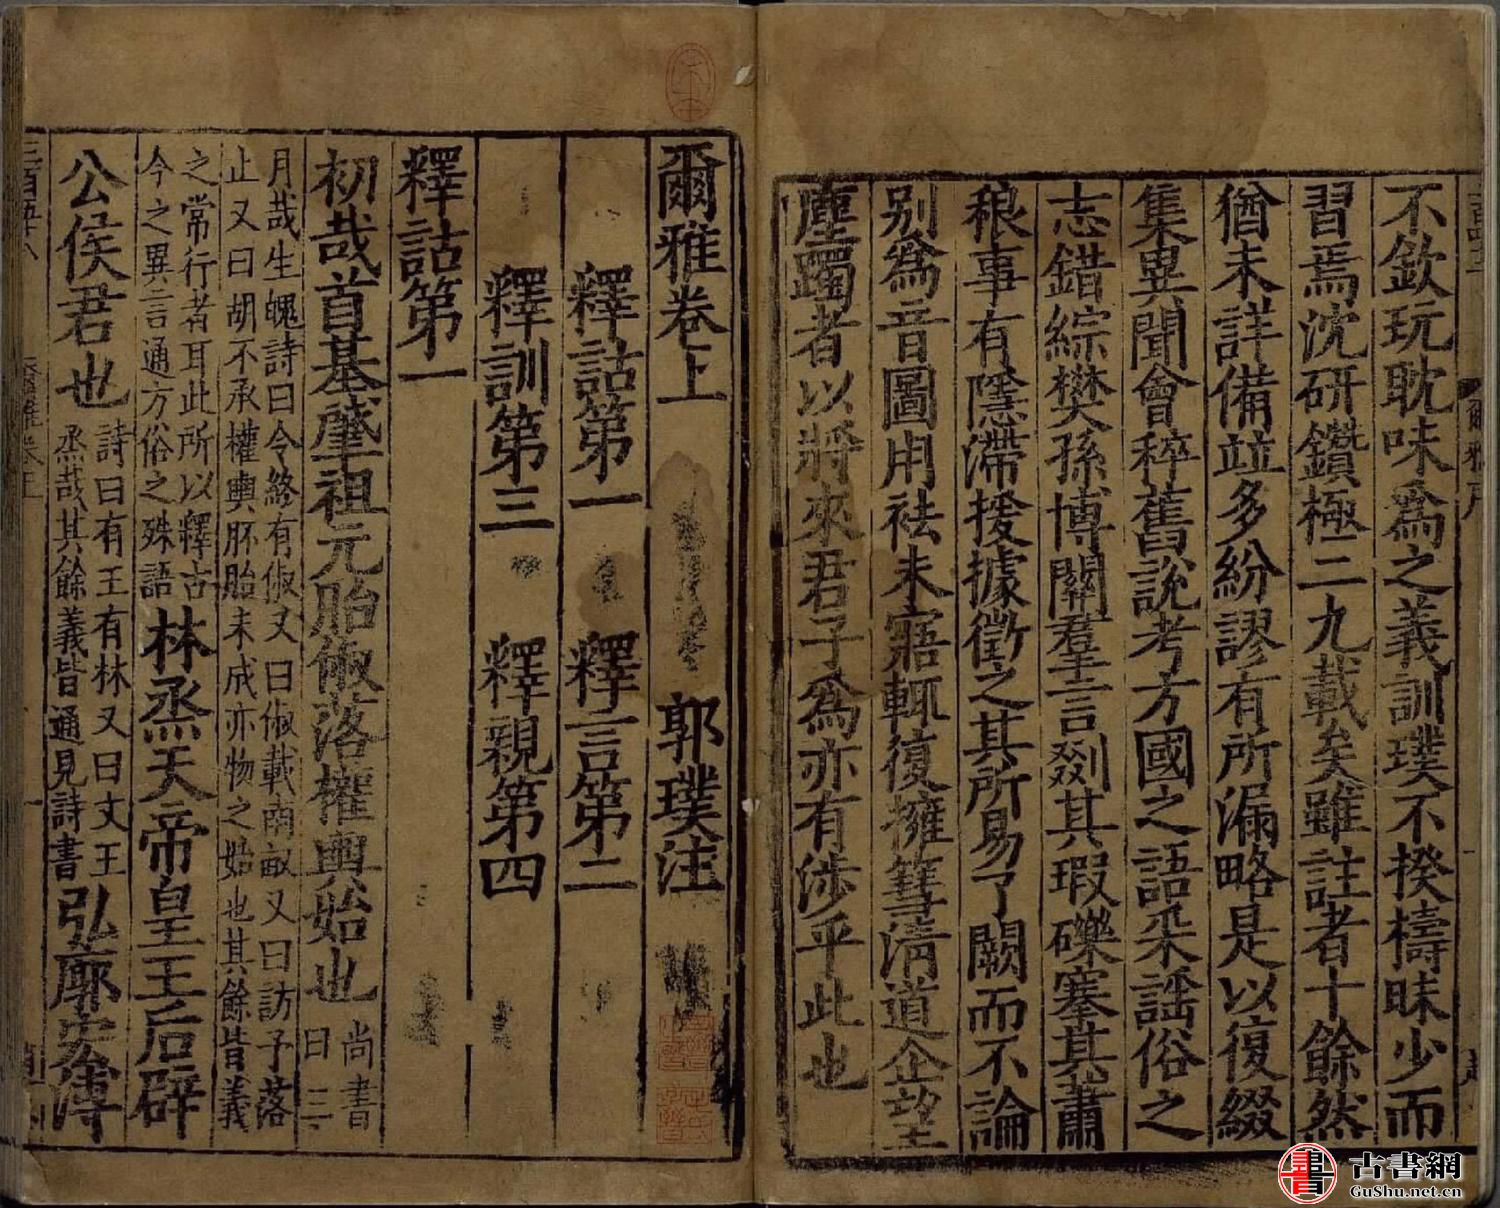 不欽玩耽味爲之義訓璞不揆檮昧少而
習焉沈研鑽極二九載矣雖註者十餘然
猶未詳備竝多紛謬有所漏略是以復綴
集異聞會稡舊說考方國之語采謡俗之
志錯綜樊孫博關羣言剟其瑕礫搴其蕭
稂事有隱滯援據徵之其所易了闕而不論
别爲音圖用袪未寤輒復擁篲清道企望
塵躅者以將來君子爲亦有涉乎此也
爾雅卷上 郭璞注
釋詁第一 釋言第二
釋訓第三 釋親第四
釋詁第一
初哉首基肇祖元胎俶落權輿始也 尚書曰三
月哉生魄詩曰令終有俶又曰俶載南畝又曰訪予落
止又曰胡不承權輿胚胎未成亦物之始也其餘皆義
之常行者耳此所以釋古今之異言通方俗之殊語 林烝天帝皇王后辟
公侯君也 詩曰有王有林又曰文王烝哉其餘義皆通見詩書 弘廓宏溥
爾雅序
爾雅卷上
古書網
GuShu.net.cn